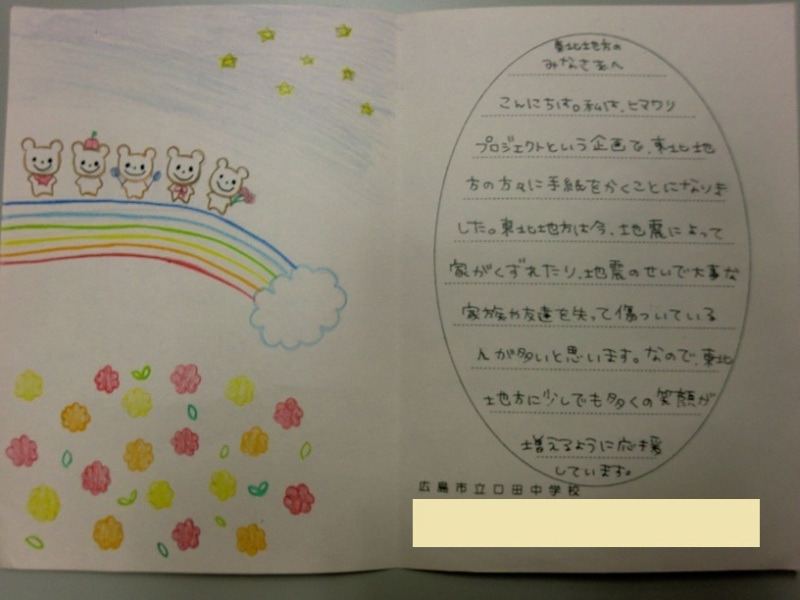 東北地方の
みなさまへ
こんにちは。私は、ヒマワリ
プロジェクトという企画で、東北地
方の方々に手紙をかくことになりま
した。東北地方は今、地震によって
家がくずれたり、地震のせいで大事な
家族や友達を失って傷ついている
人が多いと思います。なので、東北
地方に少しでも多くの笑顔が
増えるように応援
しています。
広島市立口田中学校